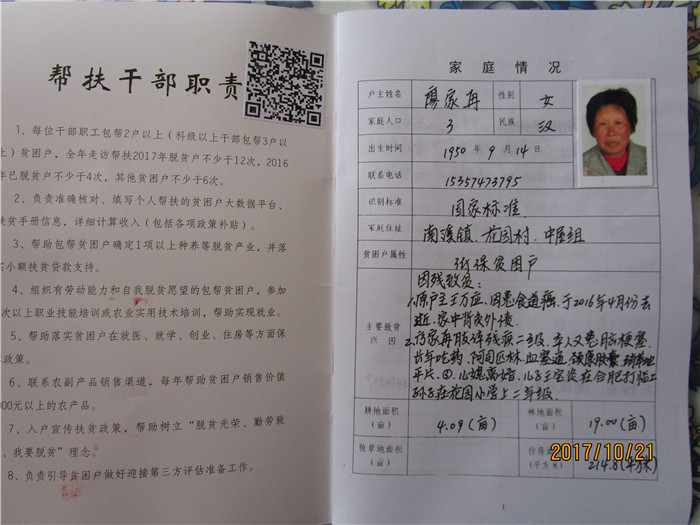 帮扶干部职责
1、每位干部职工包帮2户以上（科级以上干部包帮3户以
上）贫困户，全年走访帮扶2017年脱贫户不少于12次，2016
年已脱贫户不少于4次，其他贫困户不少于6次。
2、负责准确核对、填写个人帮扶的贫困户大数据平台、
扶贫手册信息，详细计算收入（包括各项政策补贴）。
3、帮助包帮贫困户确定1项以上种养等脱贫产业，并落
实小额扶贫贷款支持。
4、组织有劳动能力和自我脱贫愿望的包帮贫困户，参加
次以上职业技能培训或农业实用技术培训，帮助实现就业。
5、帮助落实贫困户在就医、就学、创业、住房等方面保
政策。
6、联系农副产品销售渠道，每年帮助贫困户销售价值
000元以上的农产品。
7、入户宣传扶贫政策，帮助树立“脱贫光荣、勤劳致
、我要脱贫”理念。
8、负责引导贫困户做好迎接第三方评估准备工作。
家庭情况
户主姓名 廖家冉 性别 女
家庭人口 3 民族 汉
出生时间 1950年9月14日
联系电话 15357473795
识别标准 国家标准
家庭住址 南溪镇 花园村 中屋组
贫困户属性 低保贫困户
主要致贫
原因
因残致贫：
1.原户主王万应，因患食道癌，于2016年4月份去
逝，家中背负外债
2.廖家冉肢体残疾二级，本人又患脑梗塞
出年吃药，阿司匹林 血塞通
平片.
儿媳离婚，儿子王 在合肥打临工
孙子在花园小学上二年级.
耕地面积
（亩） 4.09（亩） 林地面积
（亩） 19.00（亩）
牧草地面积
（亩） 住房面
（平方米） 214.8（平方米）
2017/10/21
1